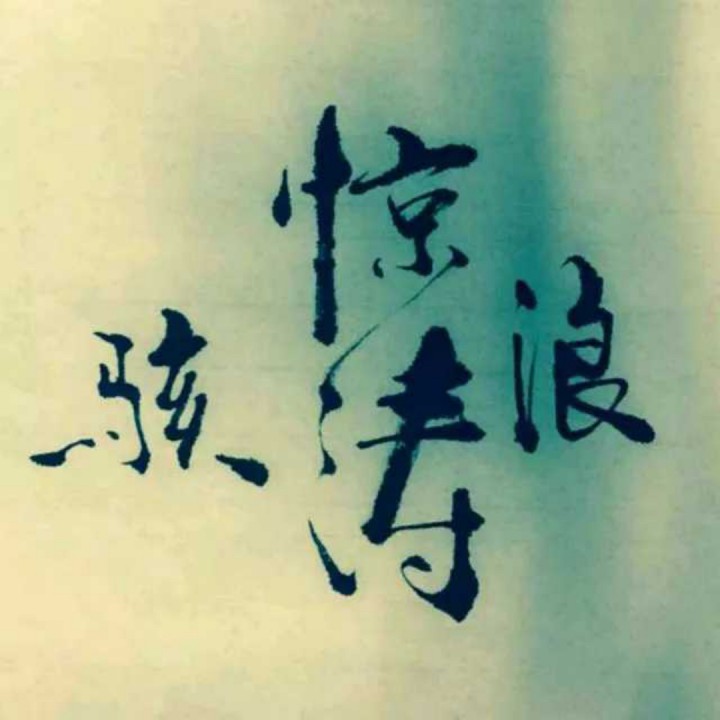 惊涛
骇浪